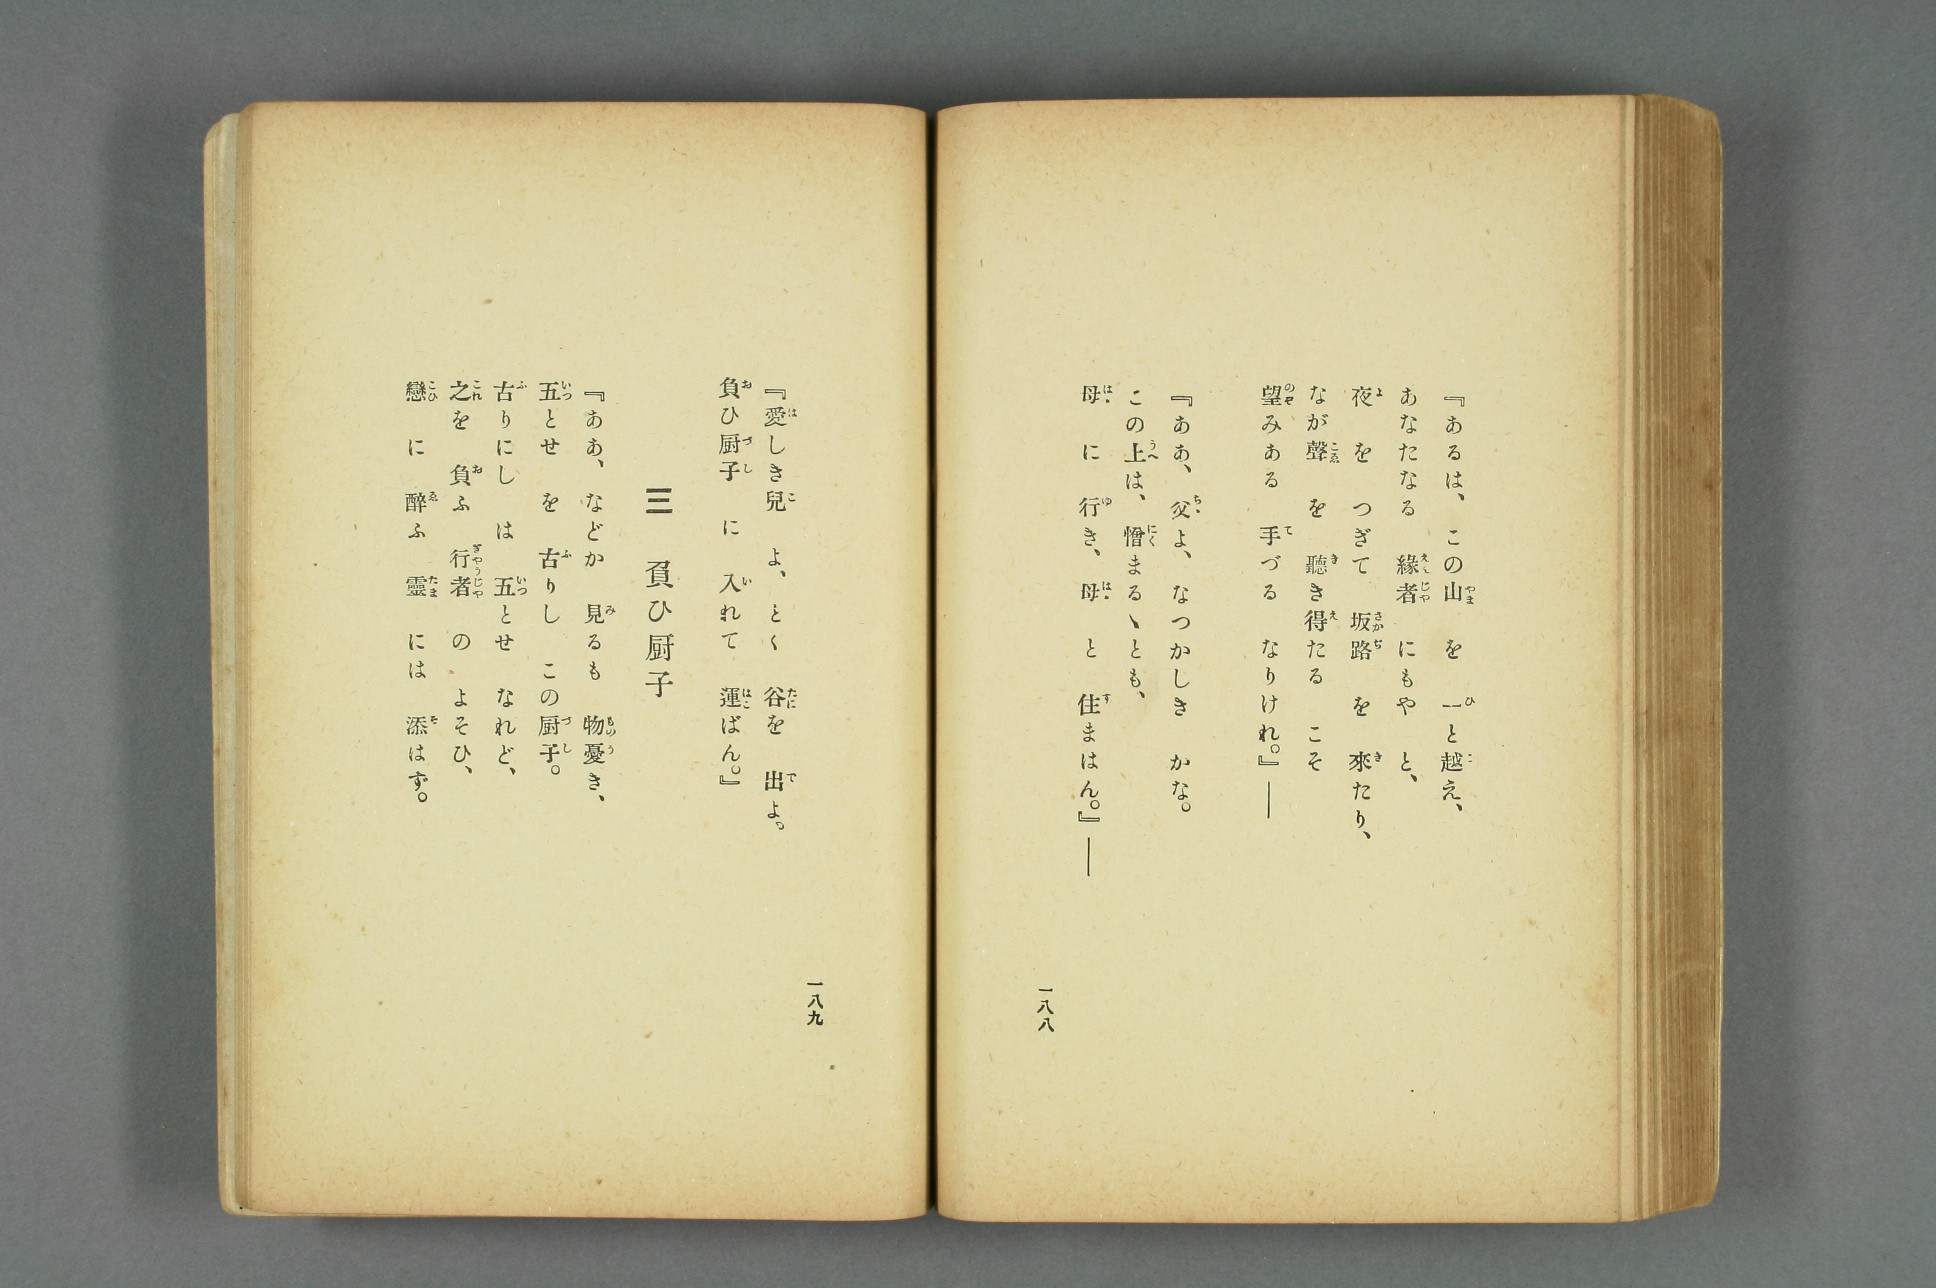 『あるは、この山を 一と越え、
あなたなる 緣者 にもや と、
夜 を つぎて 坂路 を 來たり、
なが聲 を 聽き得たる こそ
望みある 手づる なりけれ。』―
『ああ、父よ、なつかしき かな。
この上は、憎まるゝとも、
母 に 行き、母 と 住まはん。』―
一八八
『愛しき兒 よ、とく 谷を 出よ。
負ひ厨子 に 入れて 運ばん。』
三 負ひ厨子
『ああ、などか 見るも 物憂き、
五とせ を 古りし この厨子。
古りにし は 五とせ なれど、
之を 負ふ 行者 の よそひ、
戀 に 醉ふ 靈 には 添はず。
一八九